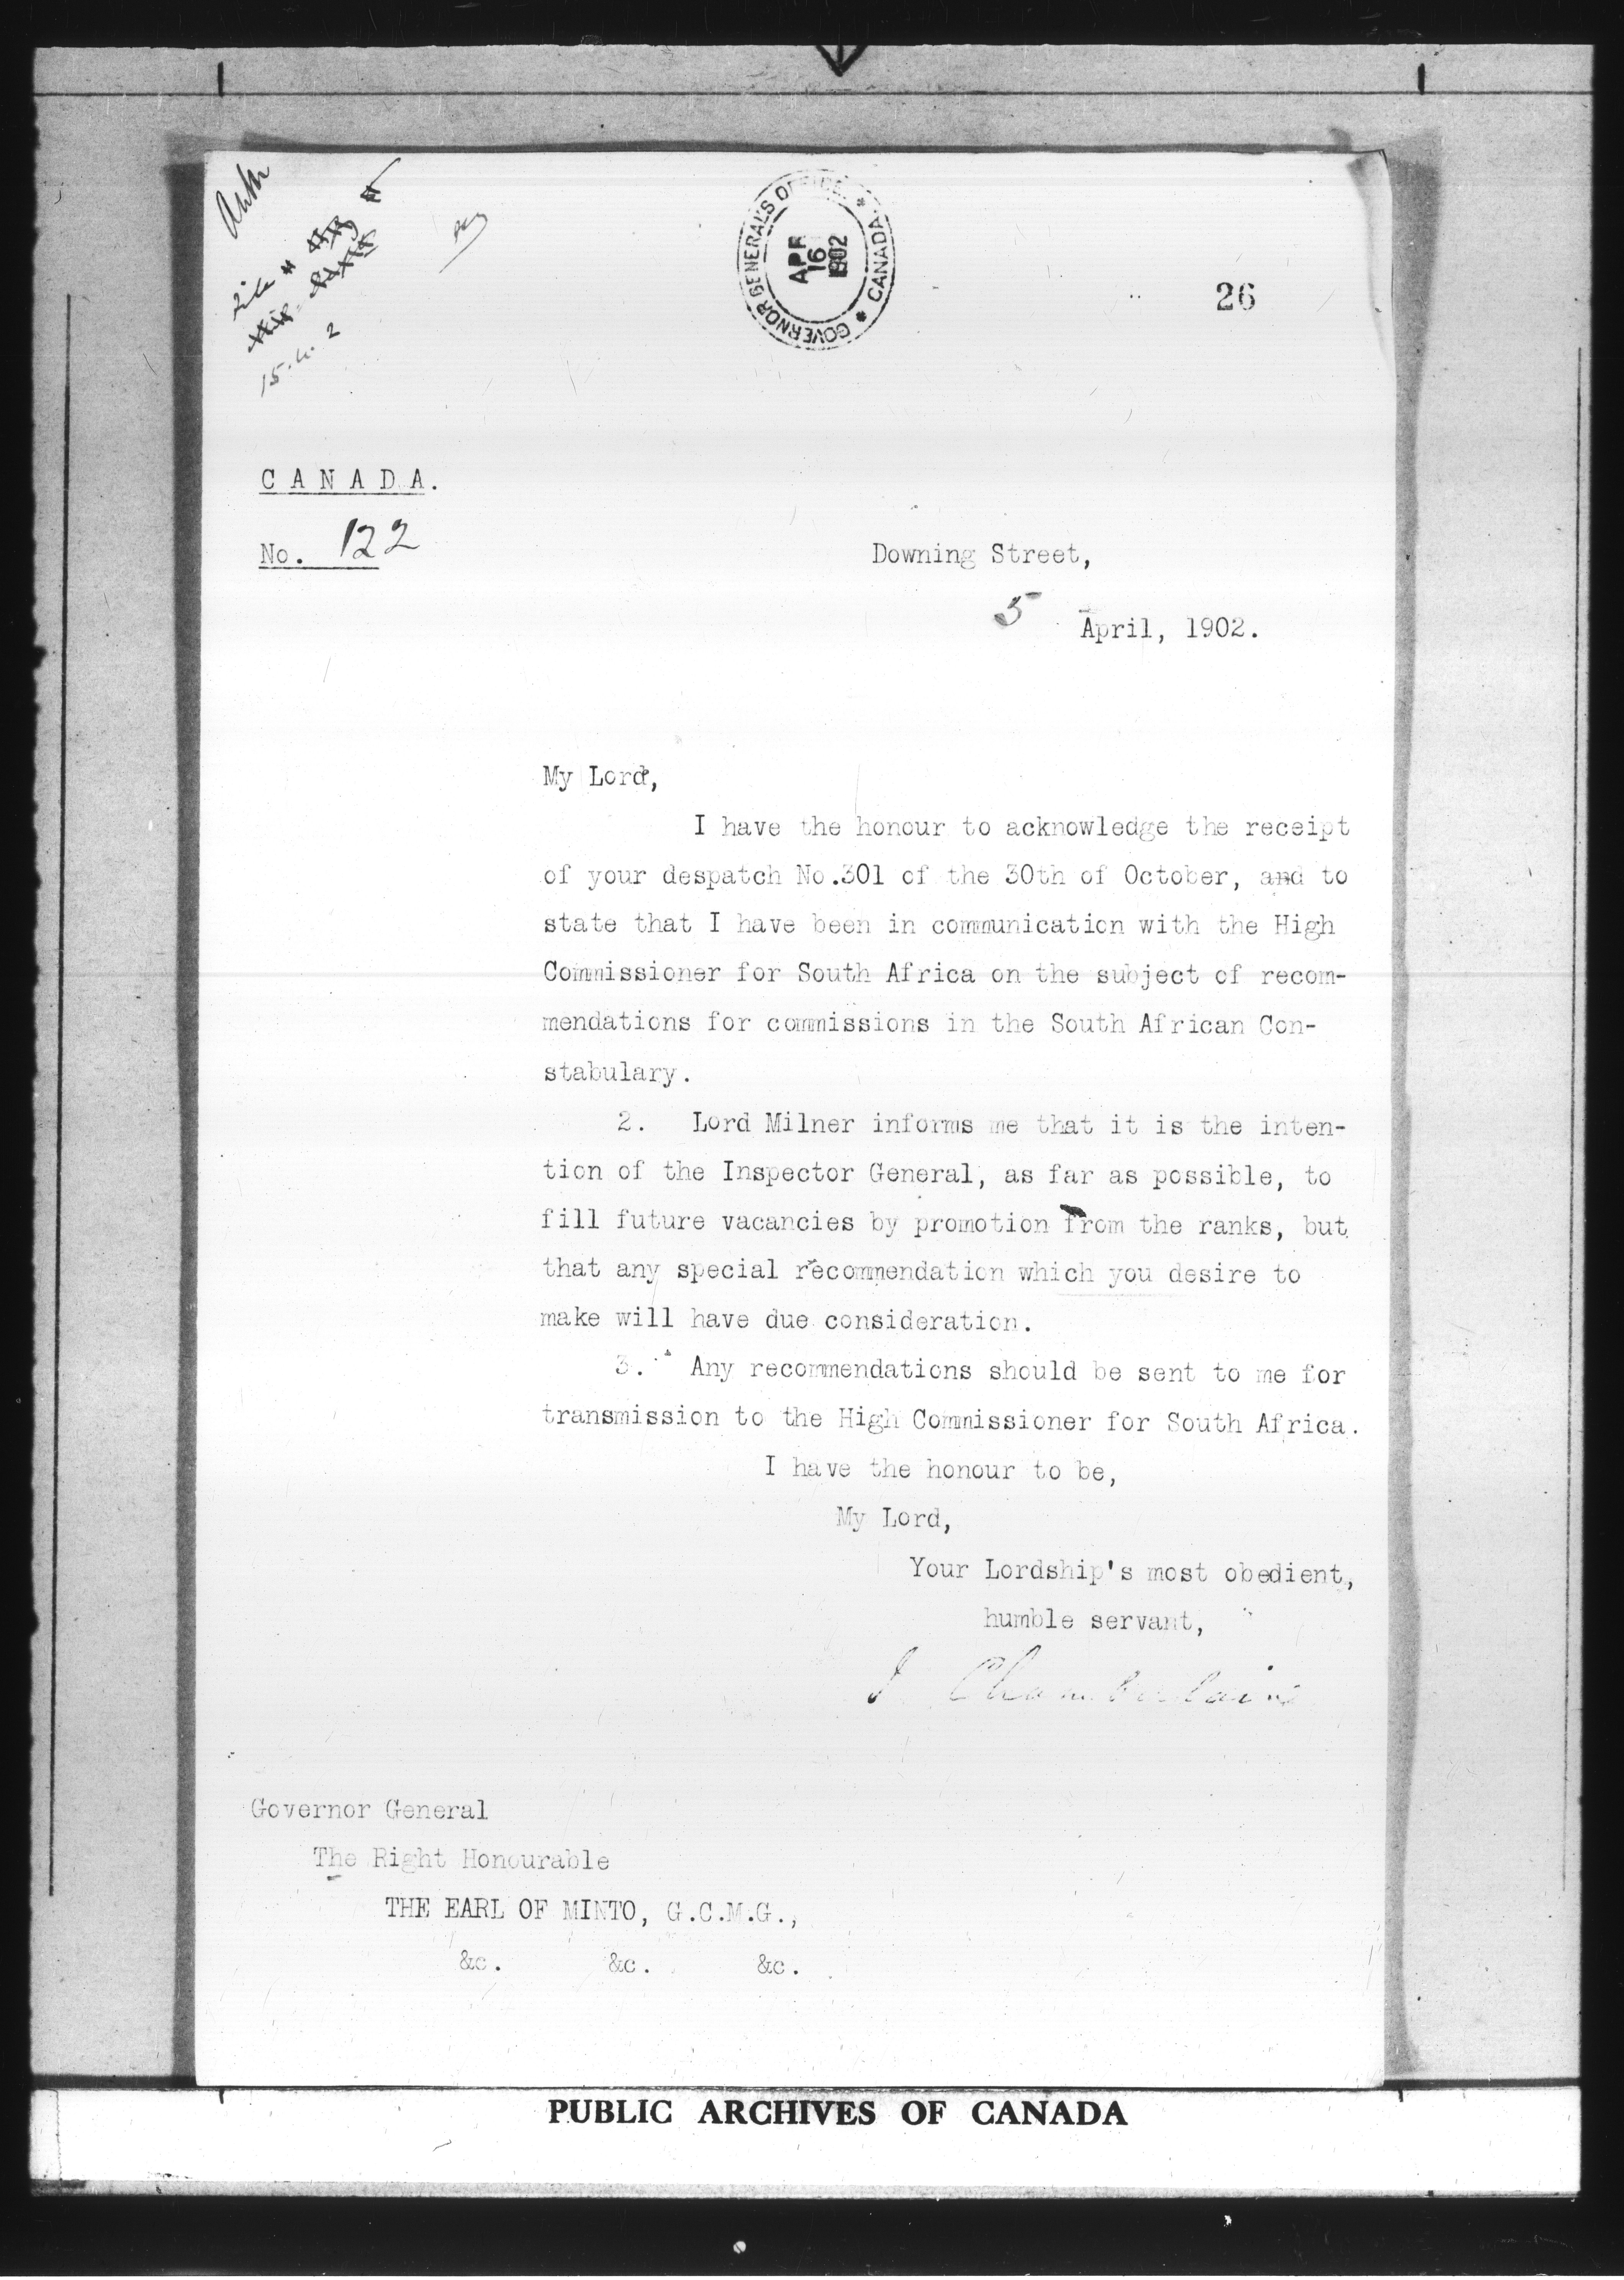 15.4.2
GOVERNOR GENERAL'S OFFICE * CANADA *
APR
16
1902
26
CANADA.
No. 122
Downing Street,
5 April, 1902.
My Lord,
I have the honour to acknowledge the receipt
of your despatch No.301 of the 30th of October, and to
state that I have been in communication with the High
Commissioner for South Africa on the subject of recom-
mendations for commissions in the South African Con-
stabulary.
2. Lord Milner informs me that it is the inten-
tion of the Inspector General, as far as possible, to
fill future vacancies by promotion from the ranks, but
that any special recommendation which you desire to
make will have due consideration.
3. Any recommendations should be sent to me for
transmission to the High Commissioner for South Africa.
I have the honour to be,
My Lord,
Your Lordship's most obedient,
humble servant,
J Chamberlain
Governor General
The Right Honourable
THE EARL OF MINTO, G.C.M.G.,
&c. &c. &c.
PUBLIC ARCHIVES OF CANADA